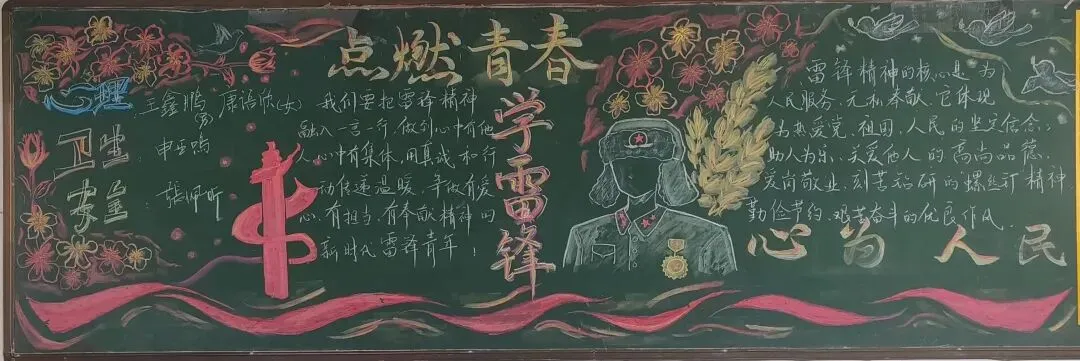 点燃青春
学雷锋
心为人民
心理：王鑫鹏(男) 康语欣(女)
卫生：申
安全：张
我们要把雷锋精神
融入一言一行，做到心中有他
人，心中有集体，用真诚和行
动传递温暖，争做有爱
心、有担当、有奉献精神的
新时代雷锋青年！
雷锋精神的核心是为
人民服务、无私奉献，它体现
为热爱党、祖国、人民的坚定信念；
助人为乐、关爱他人的高尚品德，
爱岗敬业、刻苦钻研的螺丝钉精神，
勤俭节约、艰苦奋斗的优良作风。